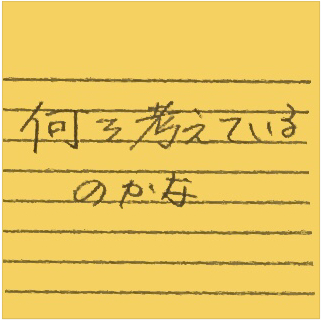 何を考えている
のかな